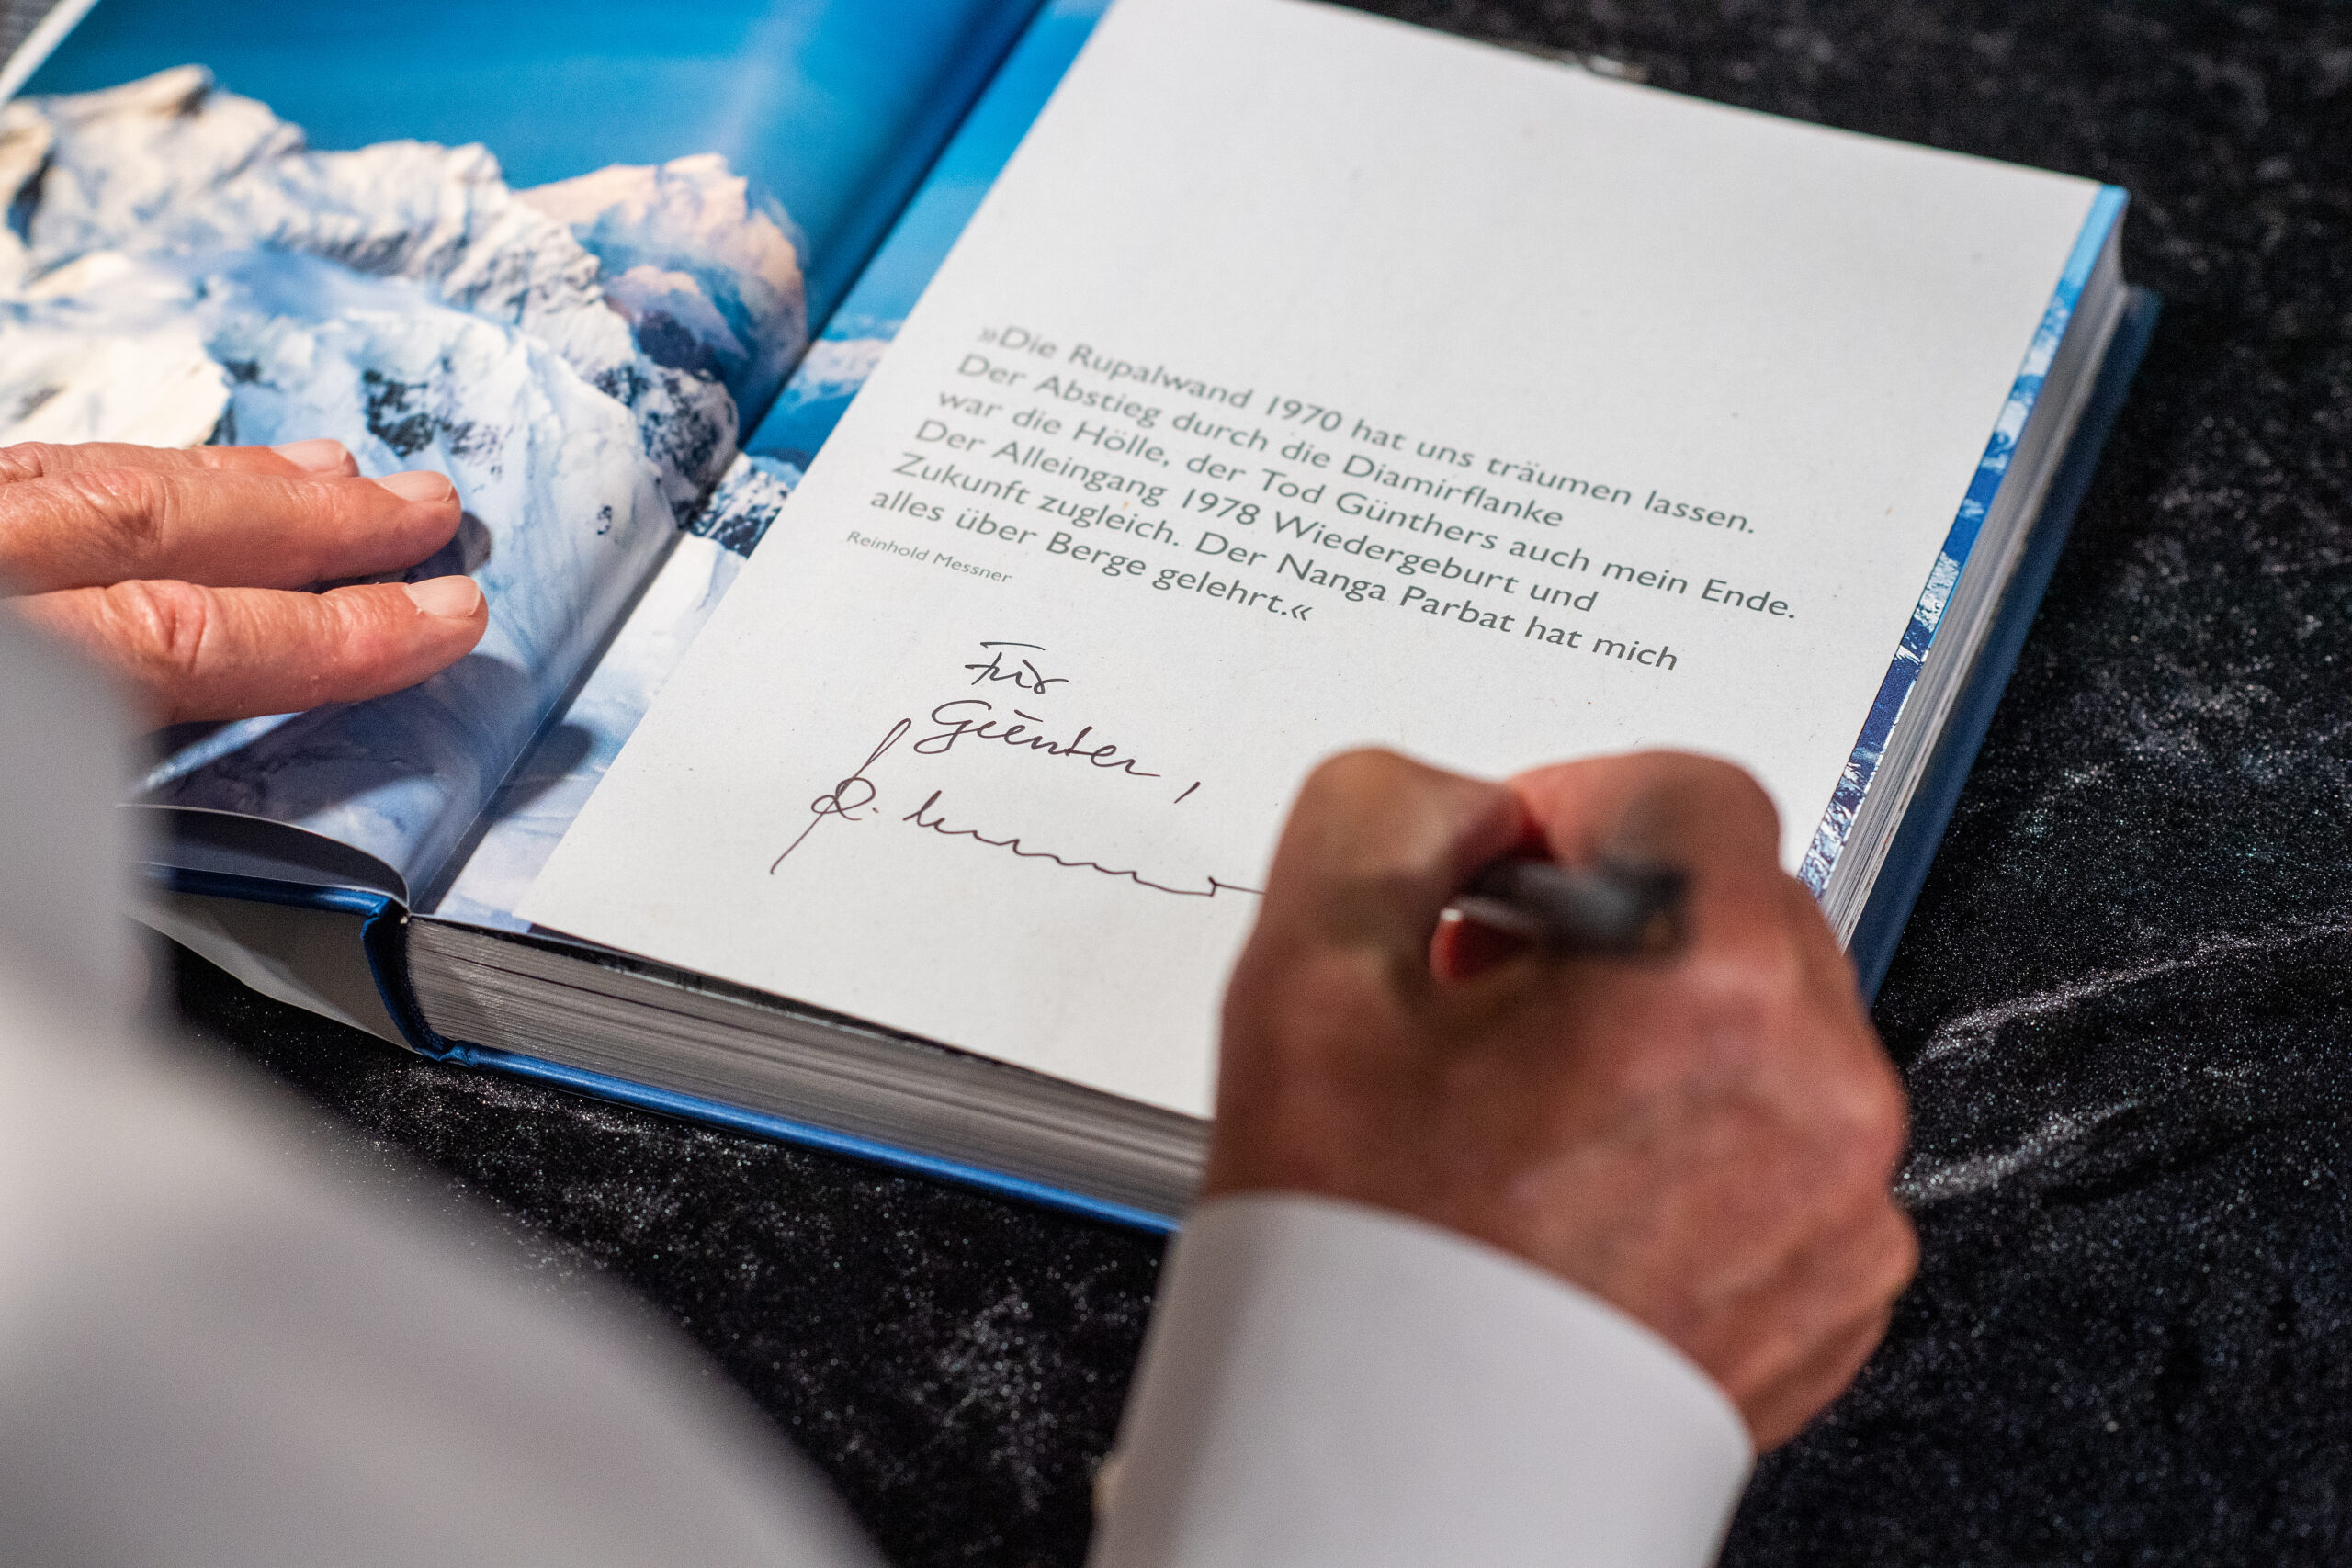 »Die Rupalwand 1970 hat uns träumen lassen.
Der Abstieg durch die Diamirflanke
war die Hölle, der Tod Günthers auch mein Ende.
Der Alleingang 1978 Wiedergeburt und
Zukunft zugleich. Der Nanga Parbat hat mich
alles über Berge gelehrt.«
Reinhold Messner
Für
Günter,
R. Messner